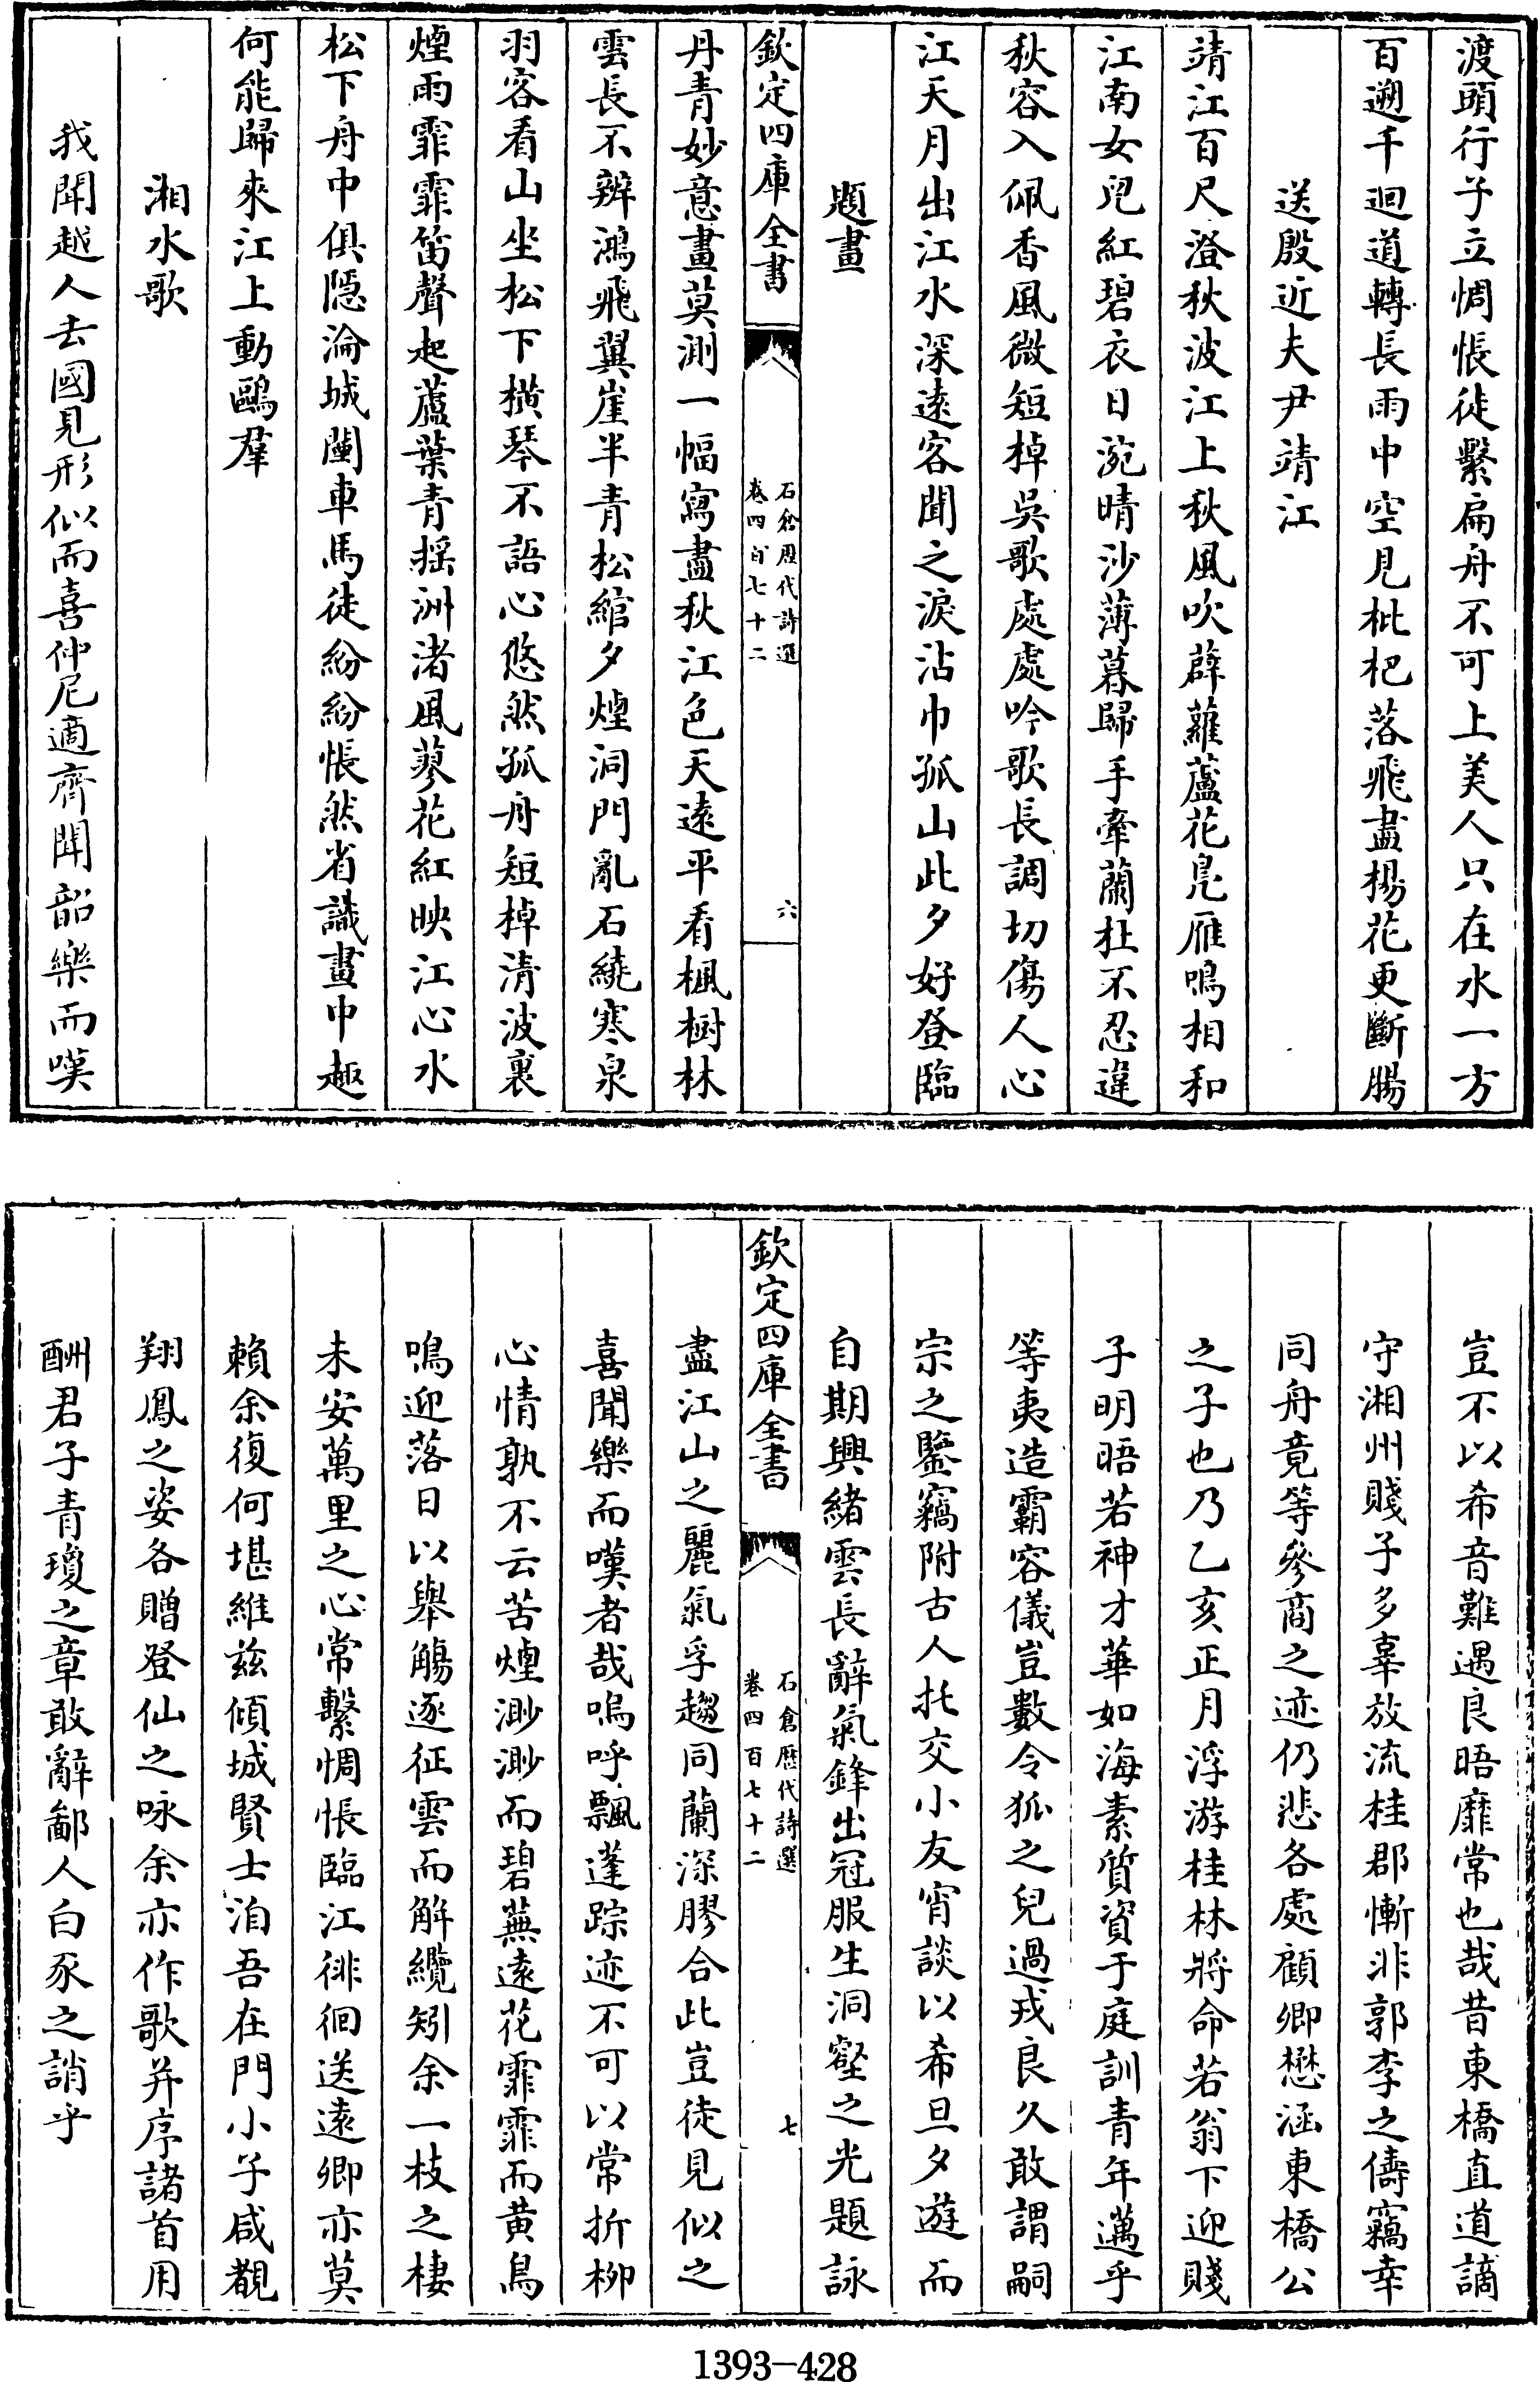 渡頭行子立惆悵徒繫扁舟不可上美人只在水一方
百遡千迴道轉長雨中空見枇杷落飛盡楊花更斷腸
送殷近夫尹靖江
靖江百尺澄秋波江上秋風吹薜蘿蘆花鳧雁鳴相和
江南女兒紅碧衣日涴晴沙薄暮歸手牽蘭杜不忍違
秋容入佩香風微短棹吳歌處處吟歌長調切傷人心
江天月出江水深遠客聞之淚沾巾孤山此夕好登臨
題畫
欽定四庫全書
石倉歷代詩選
卷四百七十二
六
丹青妙意畫莫測一幅寫盡秋江色天遠平看楓樹林
雲長不辨鴻飛翼崖半青松綰夕煙洞門亂石繞寒泉
羽客看山坐松下橫琴不語心悠然孤舟短棹清波裏
煙雨霏霏笛聲起蘆葉青搖洲渚風蓼花紅映江心水
松下舟中俱隱淪城闉車馬徒紛紛悵然省識畫中趣
何能歸來江上動鷗羣
湘水歌
我聞越人去國見形似而喜仲尼適齊聞韶樂而嘆
豈不以希音難遇良晤靡常也哉昔東橋直道謫
守湘州賤子多辜放流桂郡慚非郭李之儔竊幸
同舟竟等參商之迹仍悲各處顧卿懋涵東橋公
之子也乃乙亥正月浮游桂林將命若翁下迎賤
子明晤若神才華如海素質資于庭訓青年邁乎
等夷造霸容儀豈數令狐之兒過戎良久敢謂嗣
宗之鑒竊附古人托交小友宵談以希旦夕遊而
自期興緒雲長辭氣鋒出冠服生洞壑之光題詠
欽定四庫全書
石倉歷代詩選
卷四百七十二
七
盡江山之麗氣孚趨同蘭深膠合此豈徒見似之
喜聞樂而嘆者哉嗚呼飄蓬踪迹不可以常折柳
心情孰不云苦煙渺渺而碧蕪遠花霏霏而黄鳥
鳴迎落日以舉觴逐征雲而解纜矧余一枝之棲
未安萬里之心常繫惆悵臨江徘徊送遠卿亦莫
賴余復何堪維兹傾城賢士洎吾在門小子咸覩
翔鳳之姿各贈登仙之咏余亦作歌并序諸首用
酬君子青瓊之章敢辭鄙人白豕之誚乎
1393-428